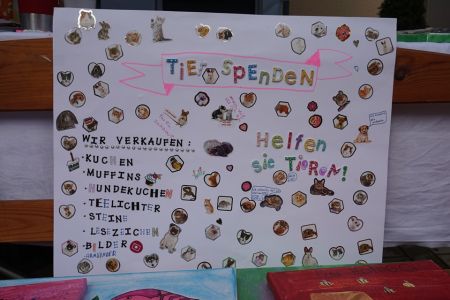 TierSPENDEN
WIR VERKAUFEN:
·KUCHEN
·MUFFINS
·HUNDEKUCHEN
·TEELICHTER
·STEINE
·LESEZEICHEN
·BILDER
Helfen
Sie TIEREN!